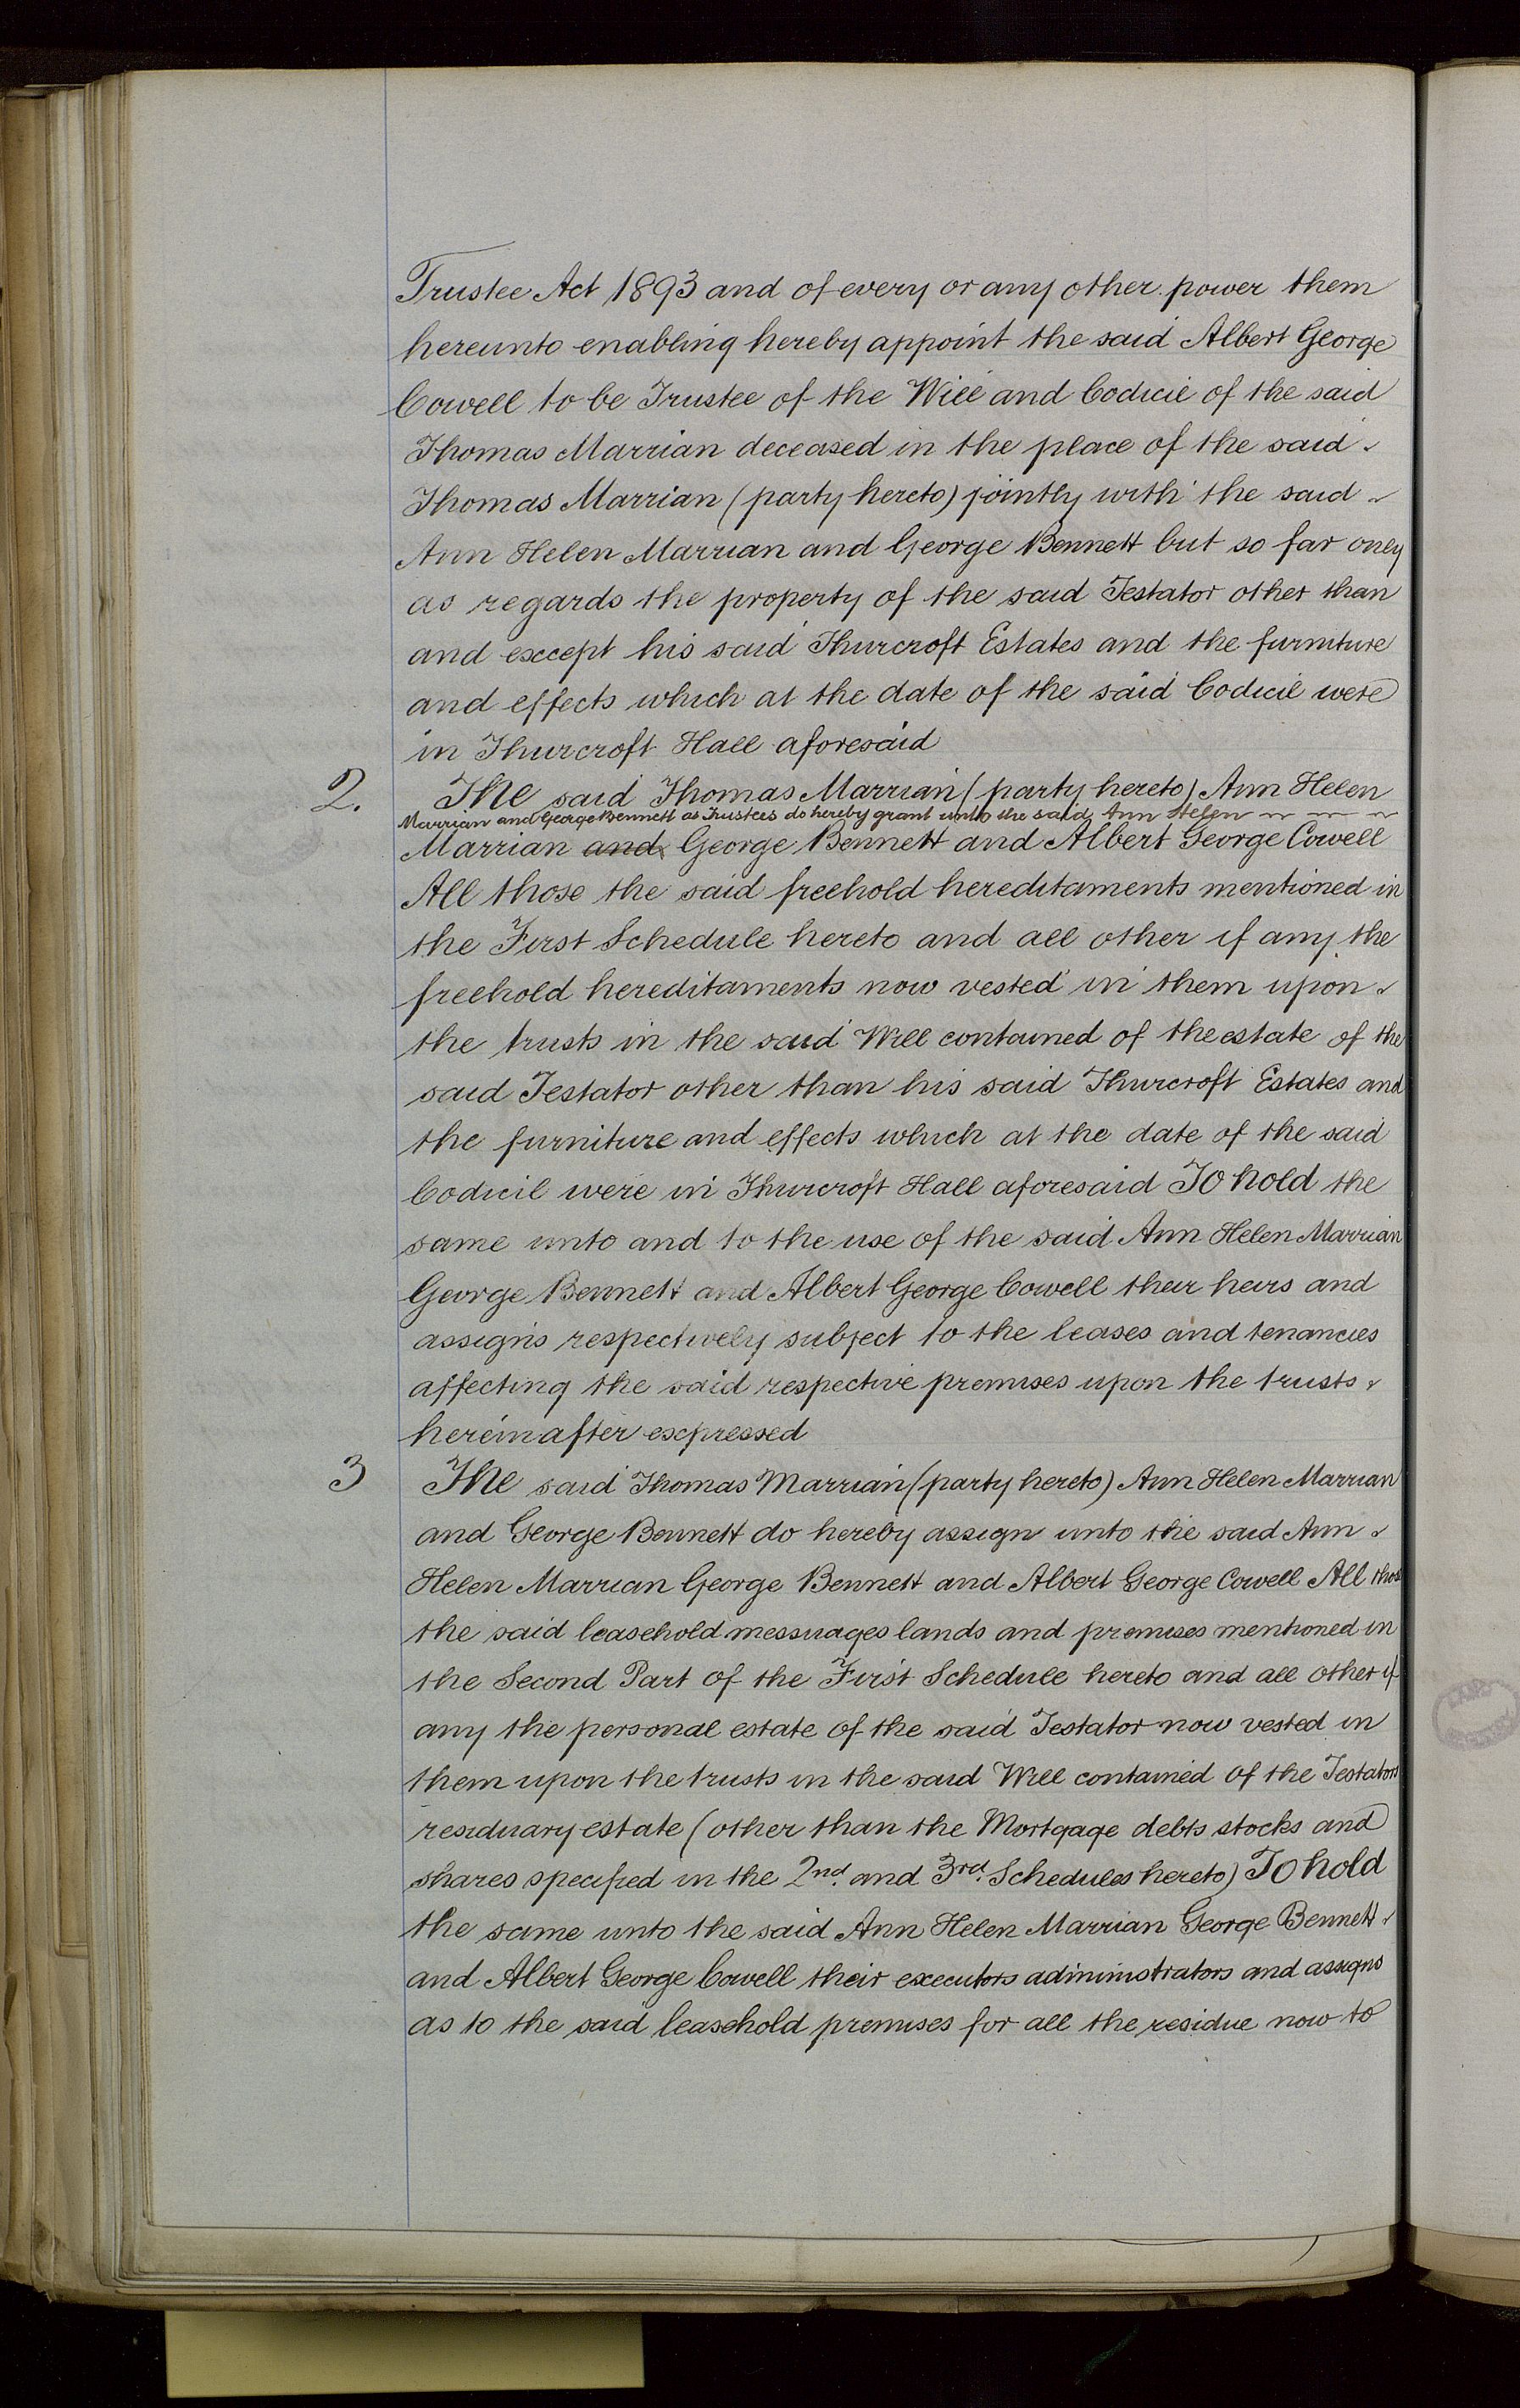 Trustee Act 1893 and of every or any other power them
hereunto enabling hereby appoint the said Albert George
Cowell to be Trustee of the Will and Codicil of the said
Thomas Marrian deceased in the place of the said
Thomas Marrian (party hereto) jointly with the said
Ann Helen Marrian and George Bennett but so far only
as regards the property of the said Testator other than
and except his said Thurcroft Estates and the furniture
and effects which at the date of the said Codicil were
in Thurcroft Hall aforesaid
2. The said Thomas Marrian (party hereto) Ann Helen
Marrian and George Bennett as Trustees do hereby grant unto the said Ann Helen
Marrian and George Bennett and Albert George Cowell
All those the said freehold hereditaments mentioned in
the First Schedule hereto and all other if any the
freehold hereditaments now vested in them upon
the trusts in the said Will contained of the estate of the
said Testator other than his said Thurcroft Estates and
the furniture and effects which at the date of the said
Codicil were in Thurcroft Hall aforesaid To hold the
same unto and to the use of the said Ann Helen Marrian
George Bennett and Albert George Cowell their heirs and
assigns respectively subject to the leases and tenancies
affecting the said respective premises upon the trusts
hereinafter expressed
3 The said Thomas Marrian (party hereto) Ann Helen Marrian
and George Bennett do hereby assign unto the said Ann
Helen Marrian George Bennett and Albert George Cowell All those
the said leasehold messuages lands and premises mentioned in
the Second Part of the First Schedule hereto and all other if
any the personal estate of the said Testator now vested in
them upon the trusts in the said Will contained of the Testators
residuary estate (other than the Mortgage debts stocks and
shares specified in the 2nd. and 3rd. Schedules hereto) To hold
the same unto the said Ann Helen Marrian George Bennett
and Albert George Cowell their executors administrators and assigns
as to the said leasehold premises for all the residue now to